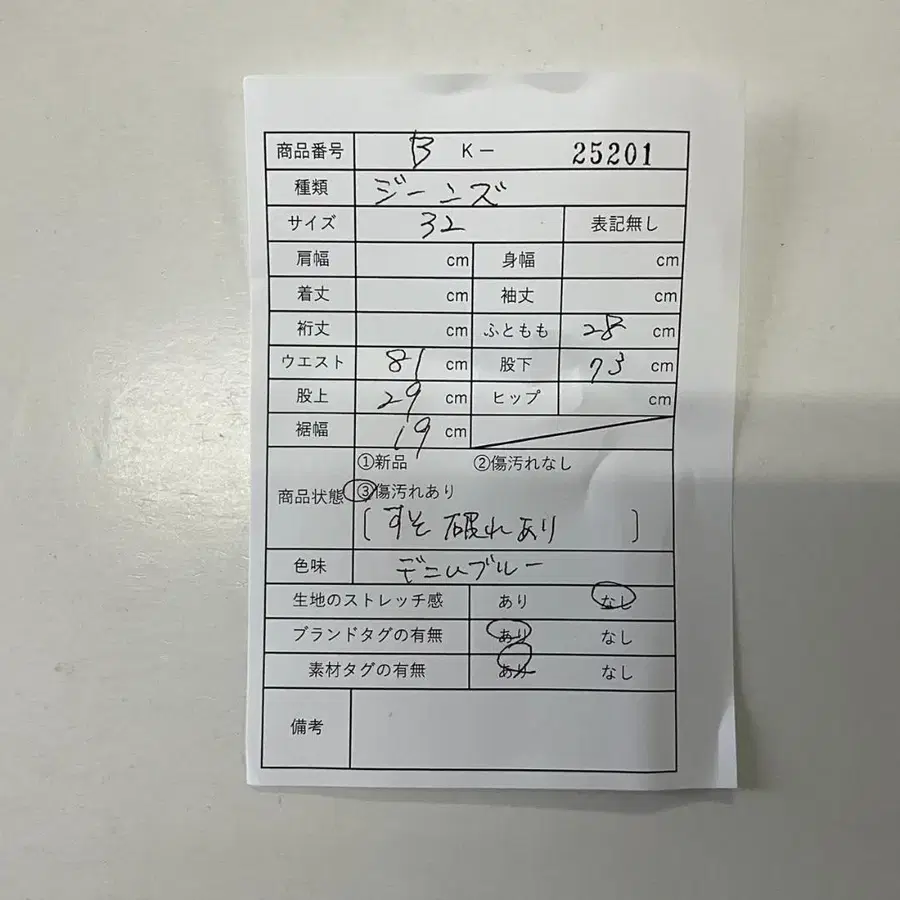 商品番号 B K− 25201
種類 ジーンズ
サイズ 32 表記無し
肩幅 cm 身幅 cm
着丈 cm 袖丈 cm
裄丈 cm ふともも 28 cm
ウエスト 81 cm 股下 73 cm
股上 29 cm ヒップ cm
裾幅 19 cm
①新品 ②傷汚れなし
商品状態 ③傷汚れあり
[すそ 破れあり ]
色味 デニムブルー
生地のストレッチ感 あり なし
ブランドタグの有無 あり なし
素材タグの有無 あり なし
備考